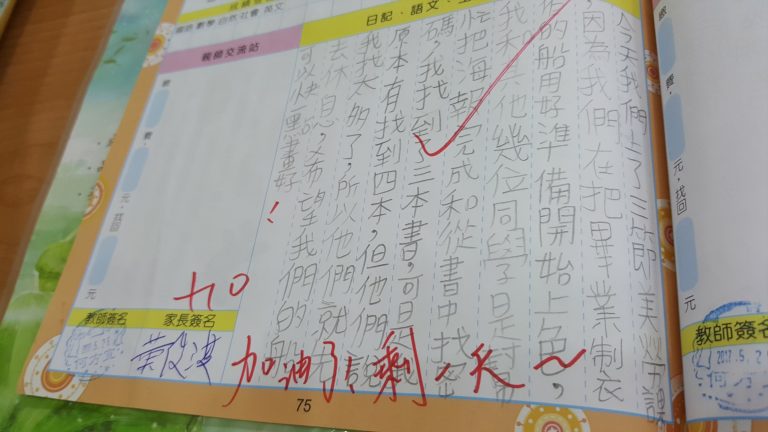 國語 數學 自然 社會 英文
日記、語文、
今天我們上了三節美勞課
,因為我們在把畢業制衣
的船用好準備開始上色,
我和其他幾位同學是
把海報完成和從書中找密
碼,我找到了三本書,可是
原本有找到四本,但他們說
我找太多了,所以他們就
去休息,希望我們的船
可以快一點畫好!
親師交流站
元,找回
元
元,找回
元
教師簽名
家長簽名
加油了!剩 天~
75
教師簽名
2017.5.2